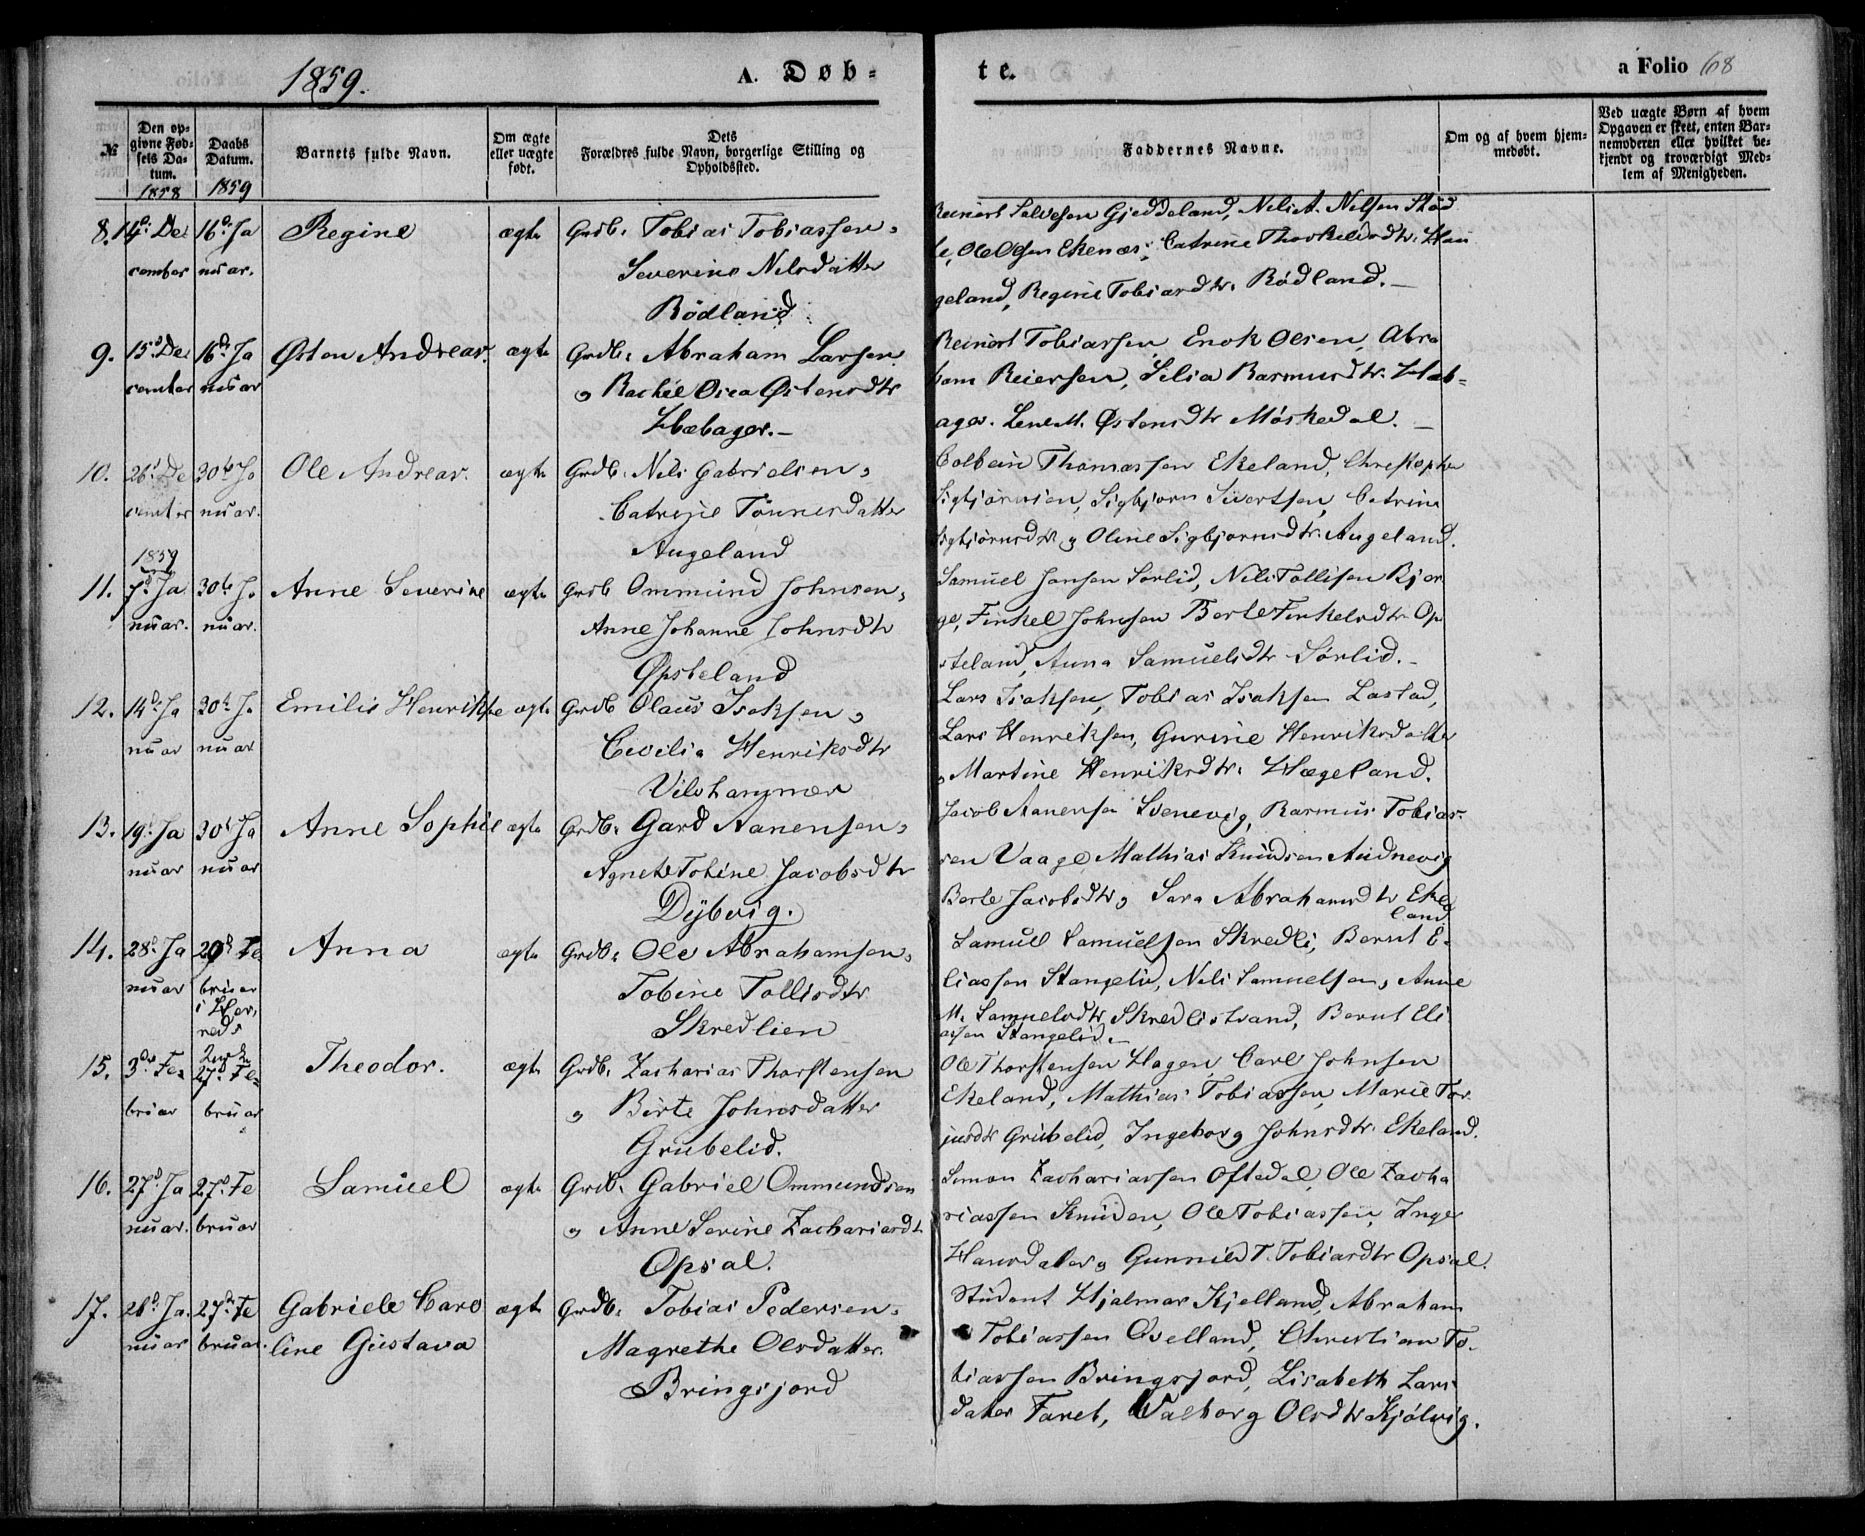 1859.
A. Døb-
te.
a Folio 68
№
Den op-
givne Fød-
sels Da-
tum.
1858
Daabs
Datum.
1859
Barnets fulde Navn.
Om ægte
eller uægte
født.
Dets
Forældres fulde Navn, borgerlige Stilling og
Opholdssted.
Faddernes Navne.
Om og af hvem hjem-
medøbt.
Ved uægte Børn af hvem
Opgaven er skeet, enten Bar-
nemoderen eller hvilket be-
kjendt og troværdigt Med-
lem af Menigheden.
8. De
cember
16de Ja
nuar.
Regine
ægte
Grdb. Tobias Tobiassen,
Severine Nilsdatter
Rödland
Reinert Salvesen Gjeddeland, Nils A. Nilsen
Ole Olsen Ekenæs, Catrine Thorkelsdtr. Hau
geland, Regine Tobiasdtr. Rødland.
9. 15de De
cember
16de Ja
nuar
Østen Andreas.
ægte
Grdb. Abraham Larsen
og Rachel Østensdtr
Hæbager.
Reinert Tobiassen, Enok Olsen, Abra
ham Reiersen, Silia Rasmusdtr. Hæb-
ager. Lene M. Østensdtr Møskedal.
10. 26de De
cember
30te Ja
nuar.
Ole Andreas.
ægte
Grdb. Nils Gabrielsen,
Catrine Tönnesdatter
Augeland
Colbein Thomassen Ekeland, Christopher
Sigbjørnsen, Sigbjørn Sivertsen, Catrine
Sigbjørnsdtr og Oline Sigbjørnsdtr. Augeland.
1859
11. 7de Ja
nuar.
30te Ja
nuar.
Anne Severine
ægte
Grdb Ommund Johnsen,
Anne Johanne Johnsdtr
Øpsteland
Samuel Jansen Sørlid, Nils Tollisen Bjer
ge, Tinkel Johnsen Berte Tinkelsdtr. Op
steland, Anna Samuelsdtr Sørlid.
12. 14de Ja
nuar
30te Ja
nuar
Emilie Henrikke
ægte
Grdb Olaus Isaksen,
Cecilia Henriksdtr
Vilshammer
Lars Isaksen, Tobias Isaksen Lastad,
Lars Henriksen, Gurine Henriksdatter
og Martine Henriksdtr. Hægeland.
13. 19de Ja
nuar
30te Ja
nuar
Anne Sophie
ægte
Grdb. Gard Aanensen,
Agnete Tobine Jacobsdtr
Dybvig.
Jacob Aanensen Svenevig, Rasmus Tobias-
sen Vaage, Mathias Knudsen Audnevig
Berte Jacobsdtr, Sara Abrahamsdtr Eke
land
14. 28de Ja
nuar
20de Fe
bruar
i Her-
red
Anna
ægte
Grdb. Ole Abrahamsen,
Tobine Tollisdtr
Skredlien
Samuel Samuelsen Skredli, Bernt E-
liassen Stangelid, Nils Samuelsen, Anne
M. Samuelsdtr Skredlistrand, Bernt Eli
assen Stangelid.
15. 3die Fe-
bruar
27de Fe-
bruar
Theodor.
ægte
Grdb. Zacharias Thorstensen
og Birte Johnsdatter
Grubelid.
Ole Thorstensen Hagen, Carl Johnsen
Ekeland, Mathias Tobiassen, Marie Tor
jusdtr Grubelid, Ingeborg Johnsdtr. Ekeland.
16. 27de Ja
nuar.
27de Fe
bruar
Samuel
ægte
Grdb. Gabriel Ommundsen
og Anne Serine Zachariasdtr
Opsal.
Simon Zachariassen Oftedal, Ole Zacha
riassen Knuden, Ole Tobiassen, Inger
Hansdatter, Gunnild T. Tobiasdtr Opsal.
17. 28de Ja
nuar
27de Fe
bruar.
Gabriele Caro
line Gustava
ægte
Grdb. Tobias Pedersen,
Magrethe Olsdatter.
Bringsjord
Student Hjalmar Kjelland, Abraham
Tobiassen Qvelland, Christian To-
biassen Bringsjord, Lisabeth Lars
datter Faret, Valborg Olsdtr Kjølvig.